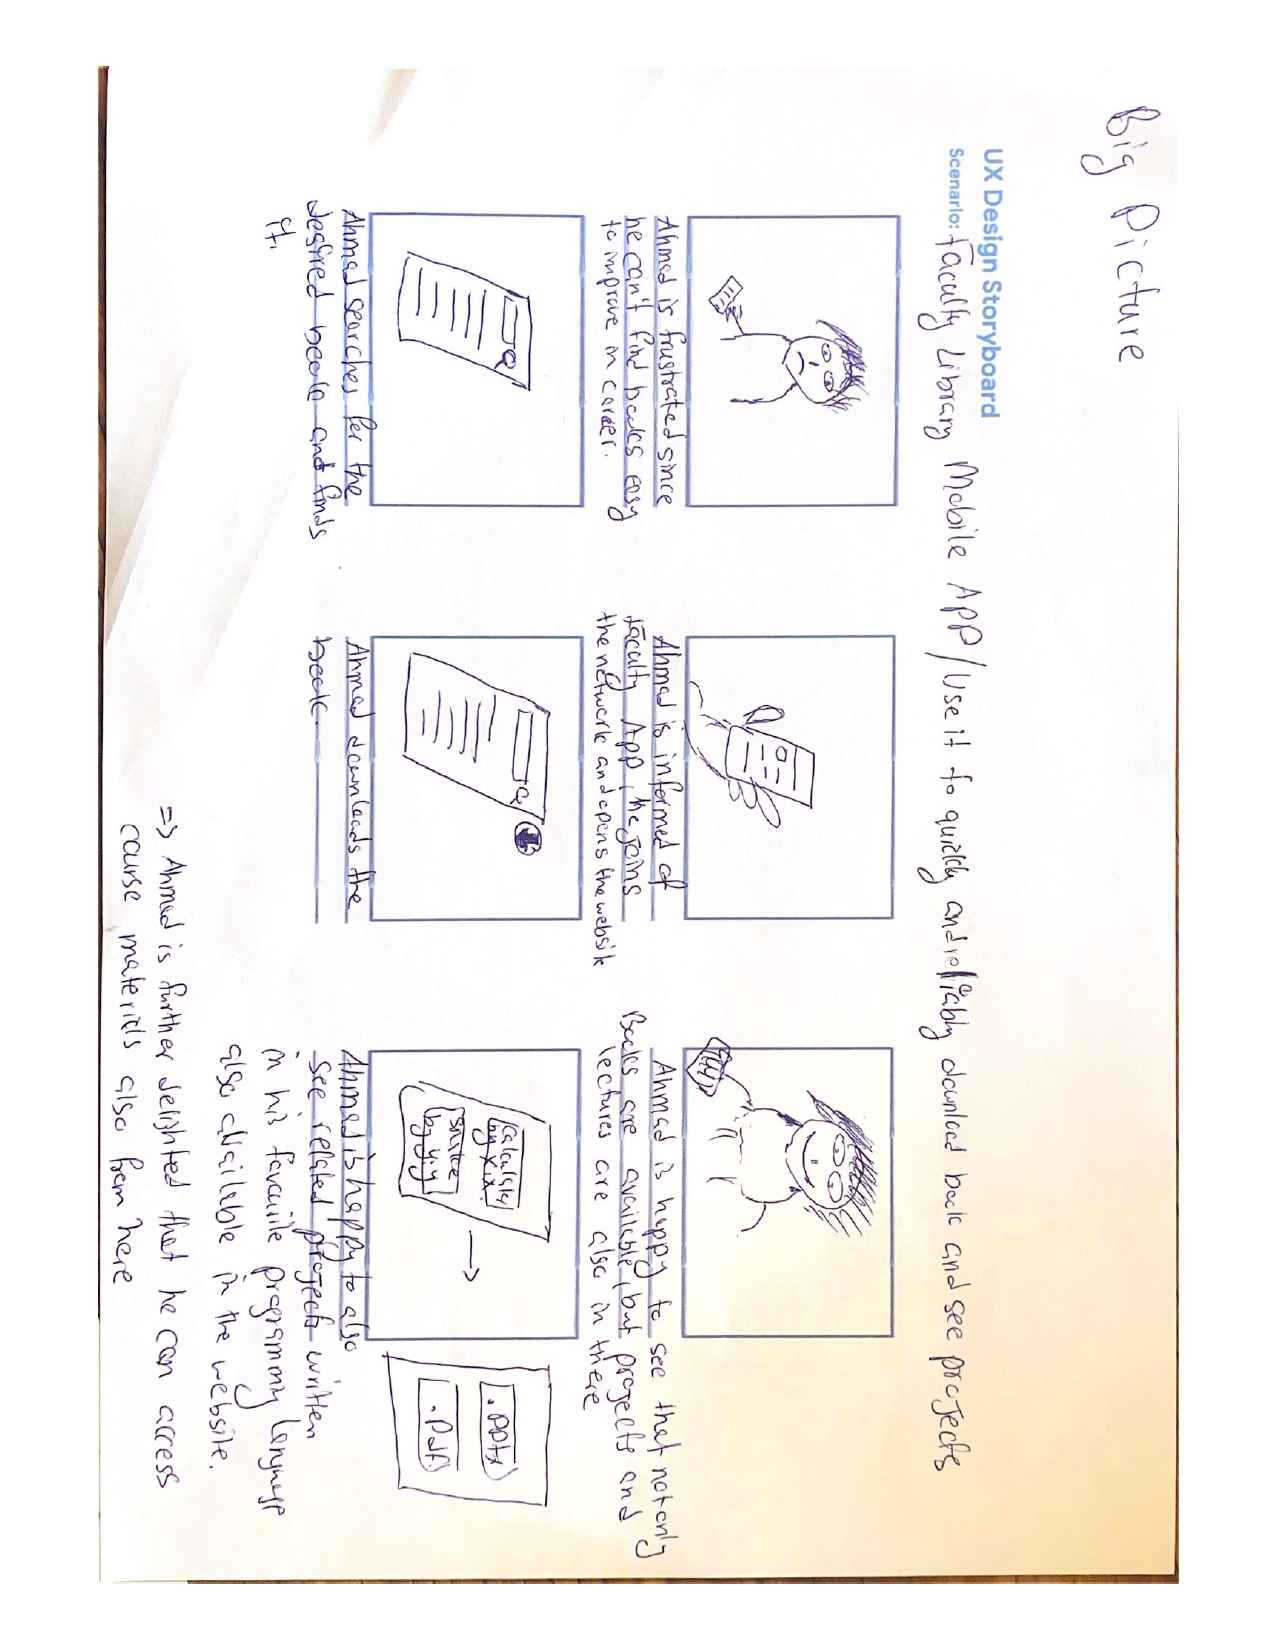 Big Picture
UX Design Storyboard
Scenario: Faculty Library Mobile APP / Use it to quickly and reliably download book and see projects
Ahmad is frustrated since
he can't find books easy
to improve in career.
Ahmad is informed of
faculty App, he joins
the network and opens the website
Ahmad is happy to see that not only
Books are available, but projects and
lectures are also in there
Ahmad searches for the
desired book and finds
it.
Ahmad downloads the
book.
by x.x.
Snake
by y.y
.PPtx
.Pdf
Ahmad is happy to also
see related projects written
in his favourite programming language
also available in the website.
=> Ahmad is further delighted that he can access
course materials also from here